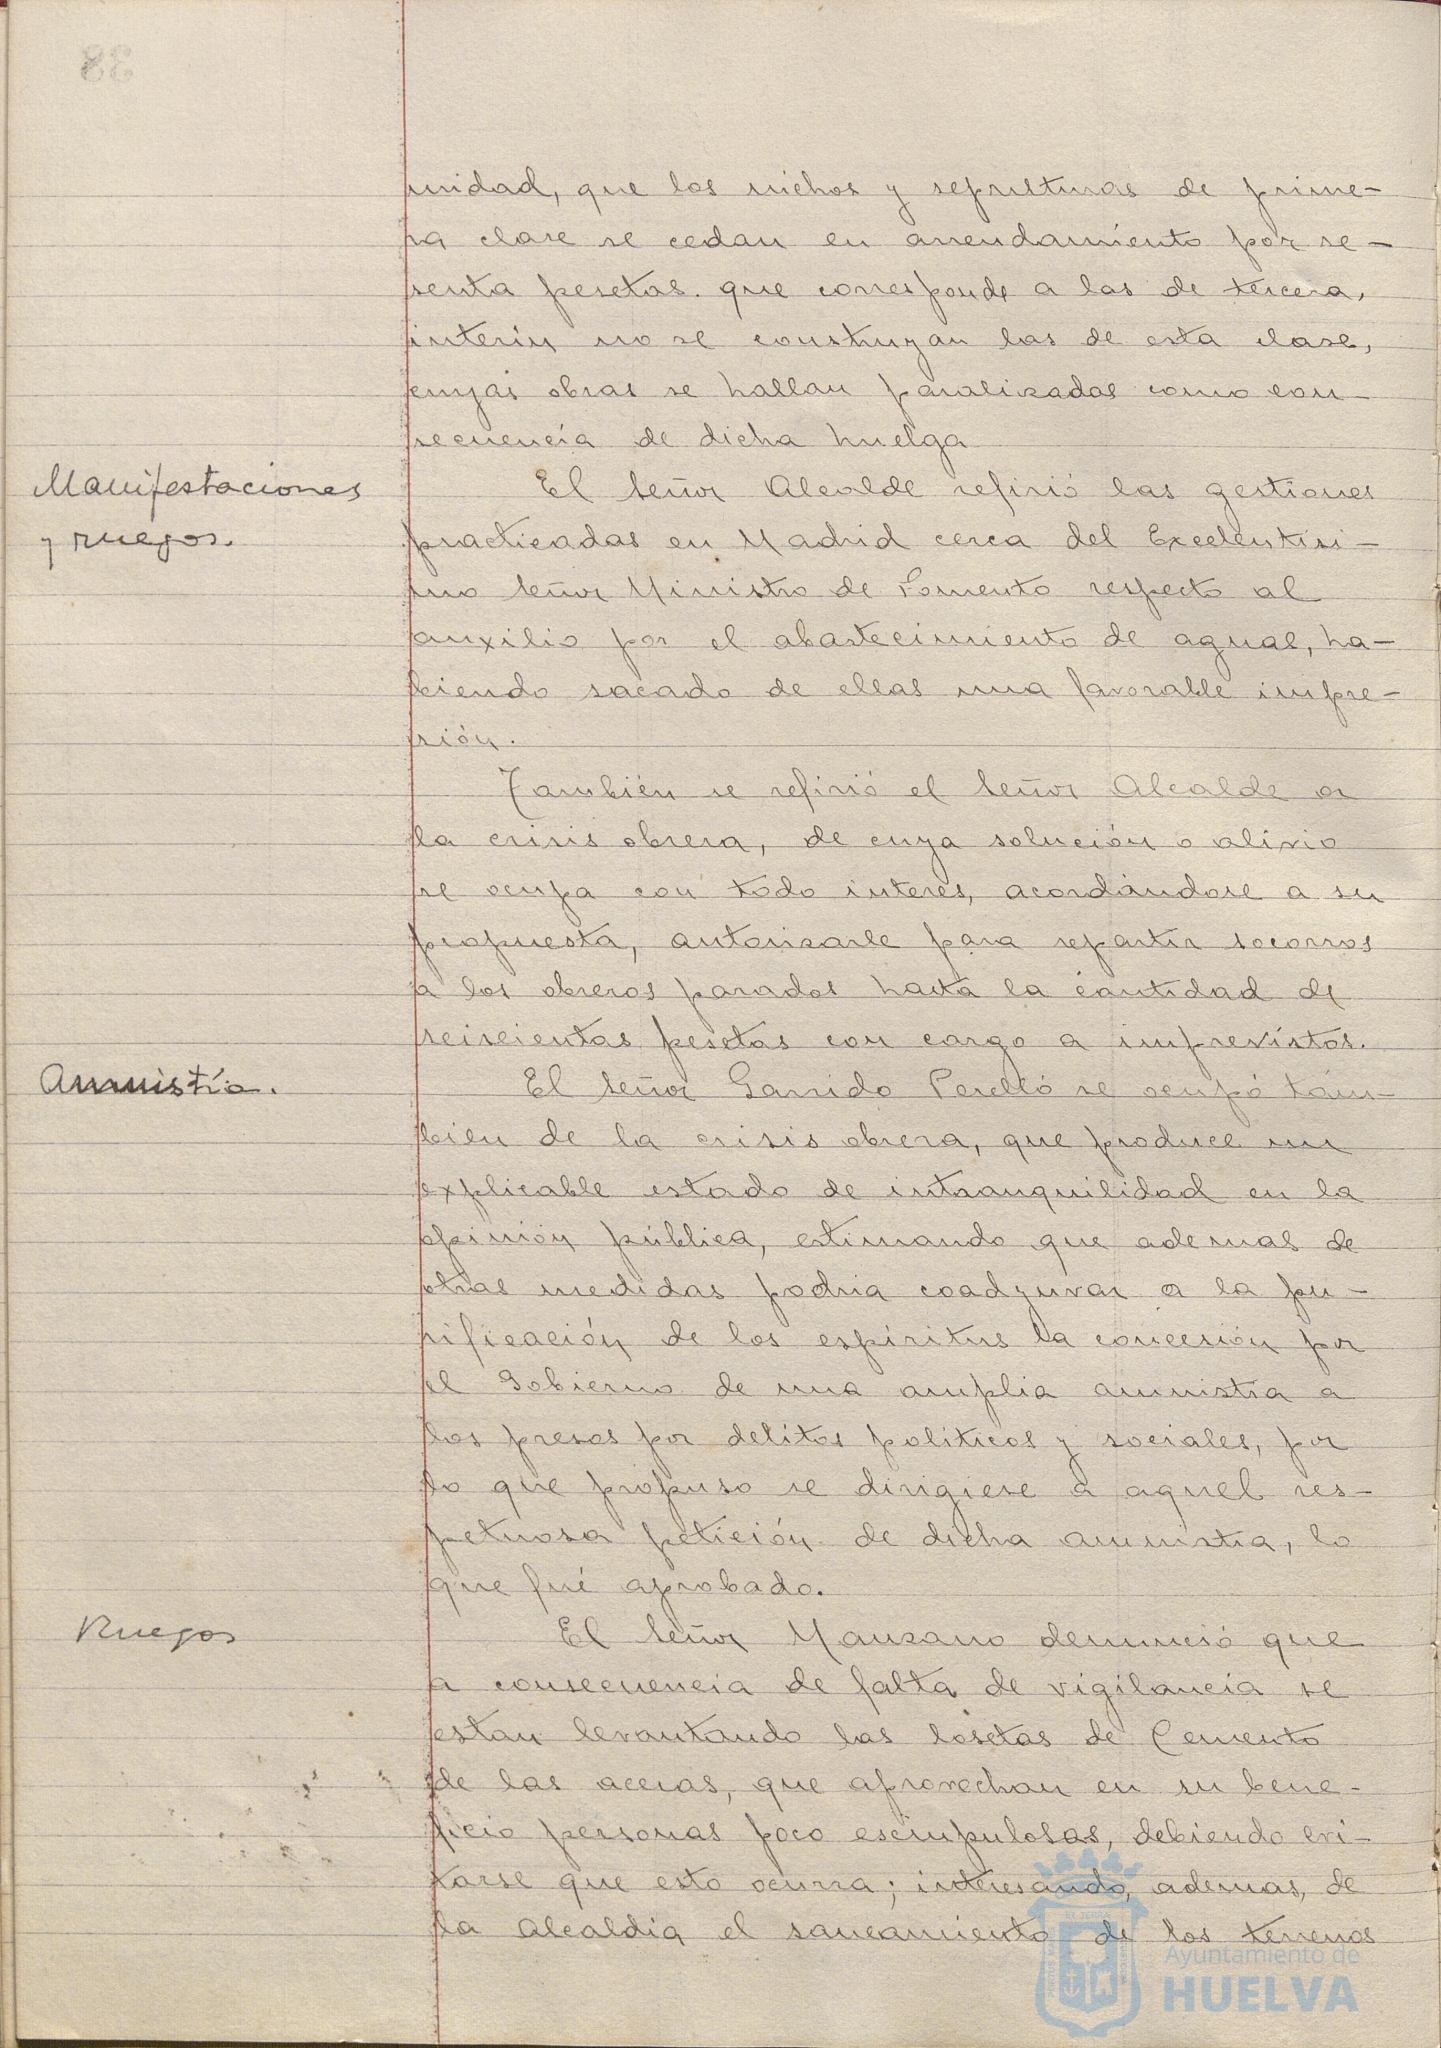 38
unidad, que los nichos y sepulturas de prime-
ra clase se cedan en arrendamiento por se-
senta pesetas. que corresponde a las de tercera,
interin no se construyan las de esta clase,
cuyas obras se hallan paralizadas como con-
secuencia de dicha huelga
Manifestaciones
y ruegos.
El Señor Alcalde refirió las gestiones
practicadas en Madrid cerca del Excelentisi-
mo Señor Ministro de Fomento respecto al
auxilio por el abastecimiento de aguas, ha-
biendo sacado de ellas una favorable impre-
sión.
También se refirió el Señor Alcalde a
la crisis obrera, de cuya solución o alivio
se ocupa con todo interés, acordándose a su
propuesta, autorizarle para repartir socorros
a los obreros parados hasta la cantidad de
seiscientas pesetas con cargo a imprevistos.
Amnistía.
El Señor Garrido Perelló se ocupó tam-
bien de la crisis obrera, que produce un
explicable estado de intranquilidad en la
opinión pública, estimando que ademas de
otras medidas podria coadyuvar a la pu-
rificación de los espíritus la concesión por
el Gobierno de una amplia amnistia a
los presos por delitos políticos y sociales, por
lo que propuso se dirigiese a aquel res-
petuosa petición de dicha amnistia, lo
que fué aprobado.
Ruegos
El Señor Manzano denunció que
a consecuencia de falta de vigilancia se
estan levantando las losetas de Cemento
de las aceras, que aprovechan en su bene-
ficio personas poco escrupulosas, debiendo evi-
tarse que esto ocurra; interesando, ademas, de
la Alcaldia el saneamiento de los terrenos
Ayuntamiento de
HUELVA